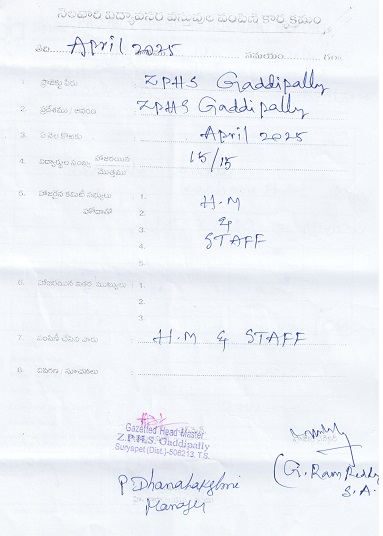 నెలవారి విద్యావసర వస్తువుల పంపిణీ కార్యక్రమం
తేది: April 2025 సమయం: గం॥
1. ప్రాజెక్టు పేరు ZPHS Gaddipally
2. ప్రదేశము / వివరం ZPHS Gaddipally
3. ఏ నెల కొరకు April 2025
4. విద్యార్థుల సంఖ్య హాజరయిన 15/15
మొత్తము
5. హాజరైన కమిటీ సభ్యులు 1. H.M
హోదాతో 2. &
3. STAFF
4.
5.
6. హాజరయిన ఇతర ముఖ్యులు 1.
2.
3.
7. పంపిణీ చేసిన వారు H.M & STAFF
8. వివరణ / సూచనలు
Gazetted Head Master
Z.P.H.S. Gaddipally
Suryapet (Dist.)-508213. T.S.
P Dhanalakshmi
Manager
(G. Ram Reddy
S.A.